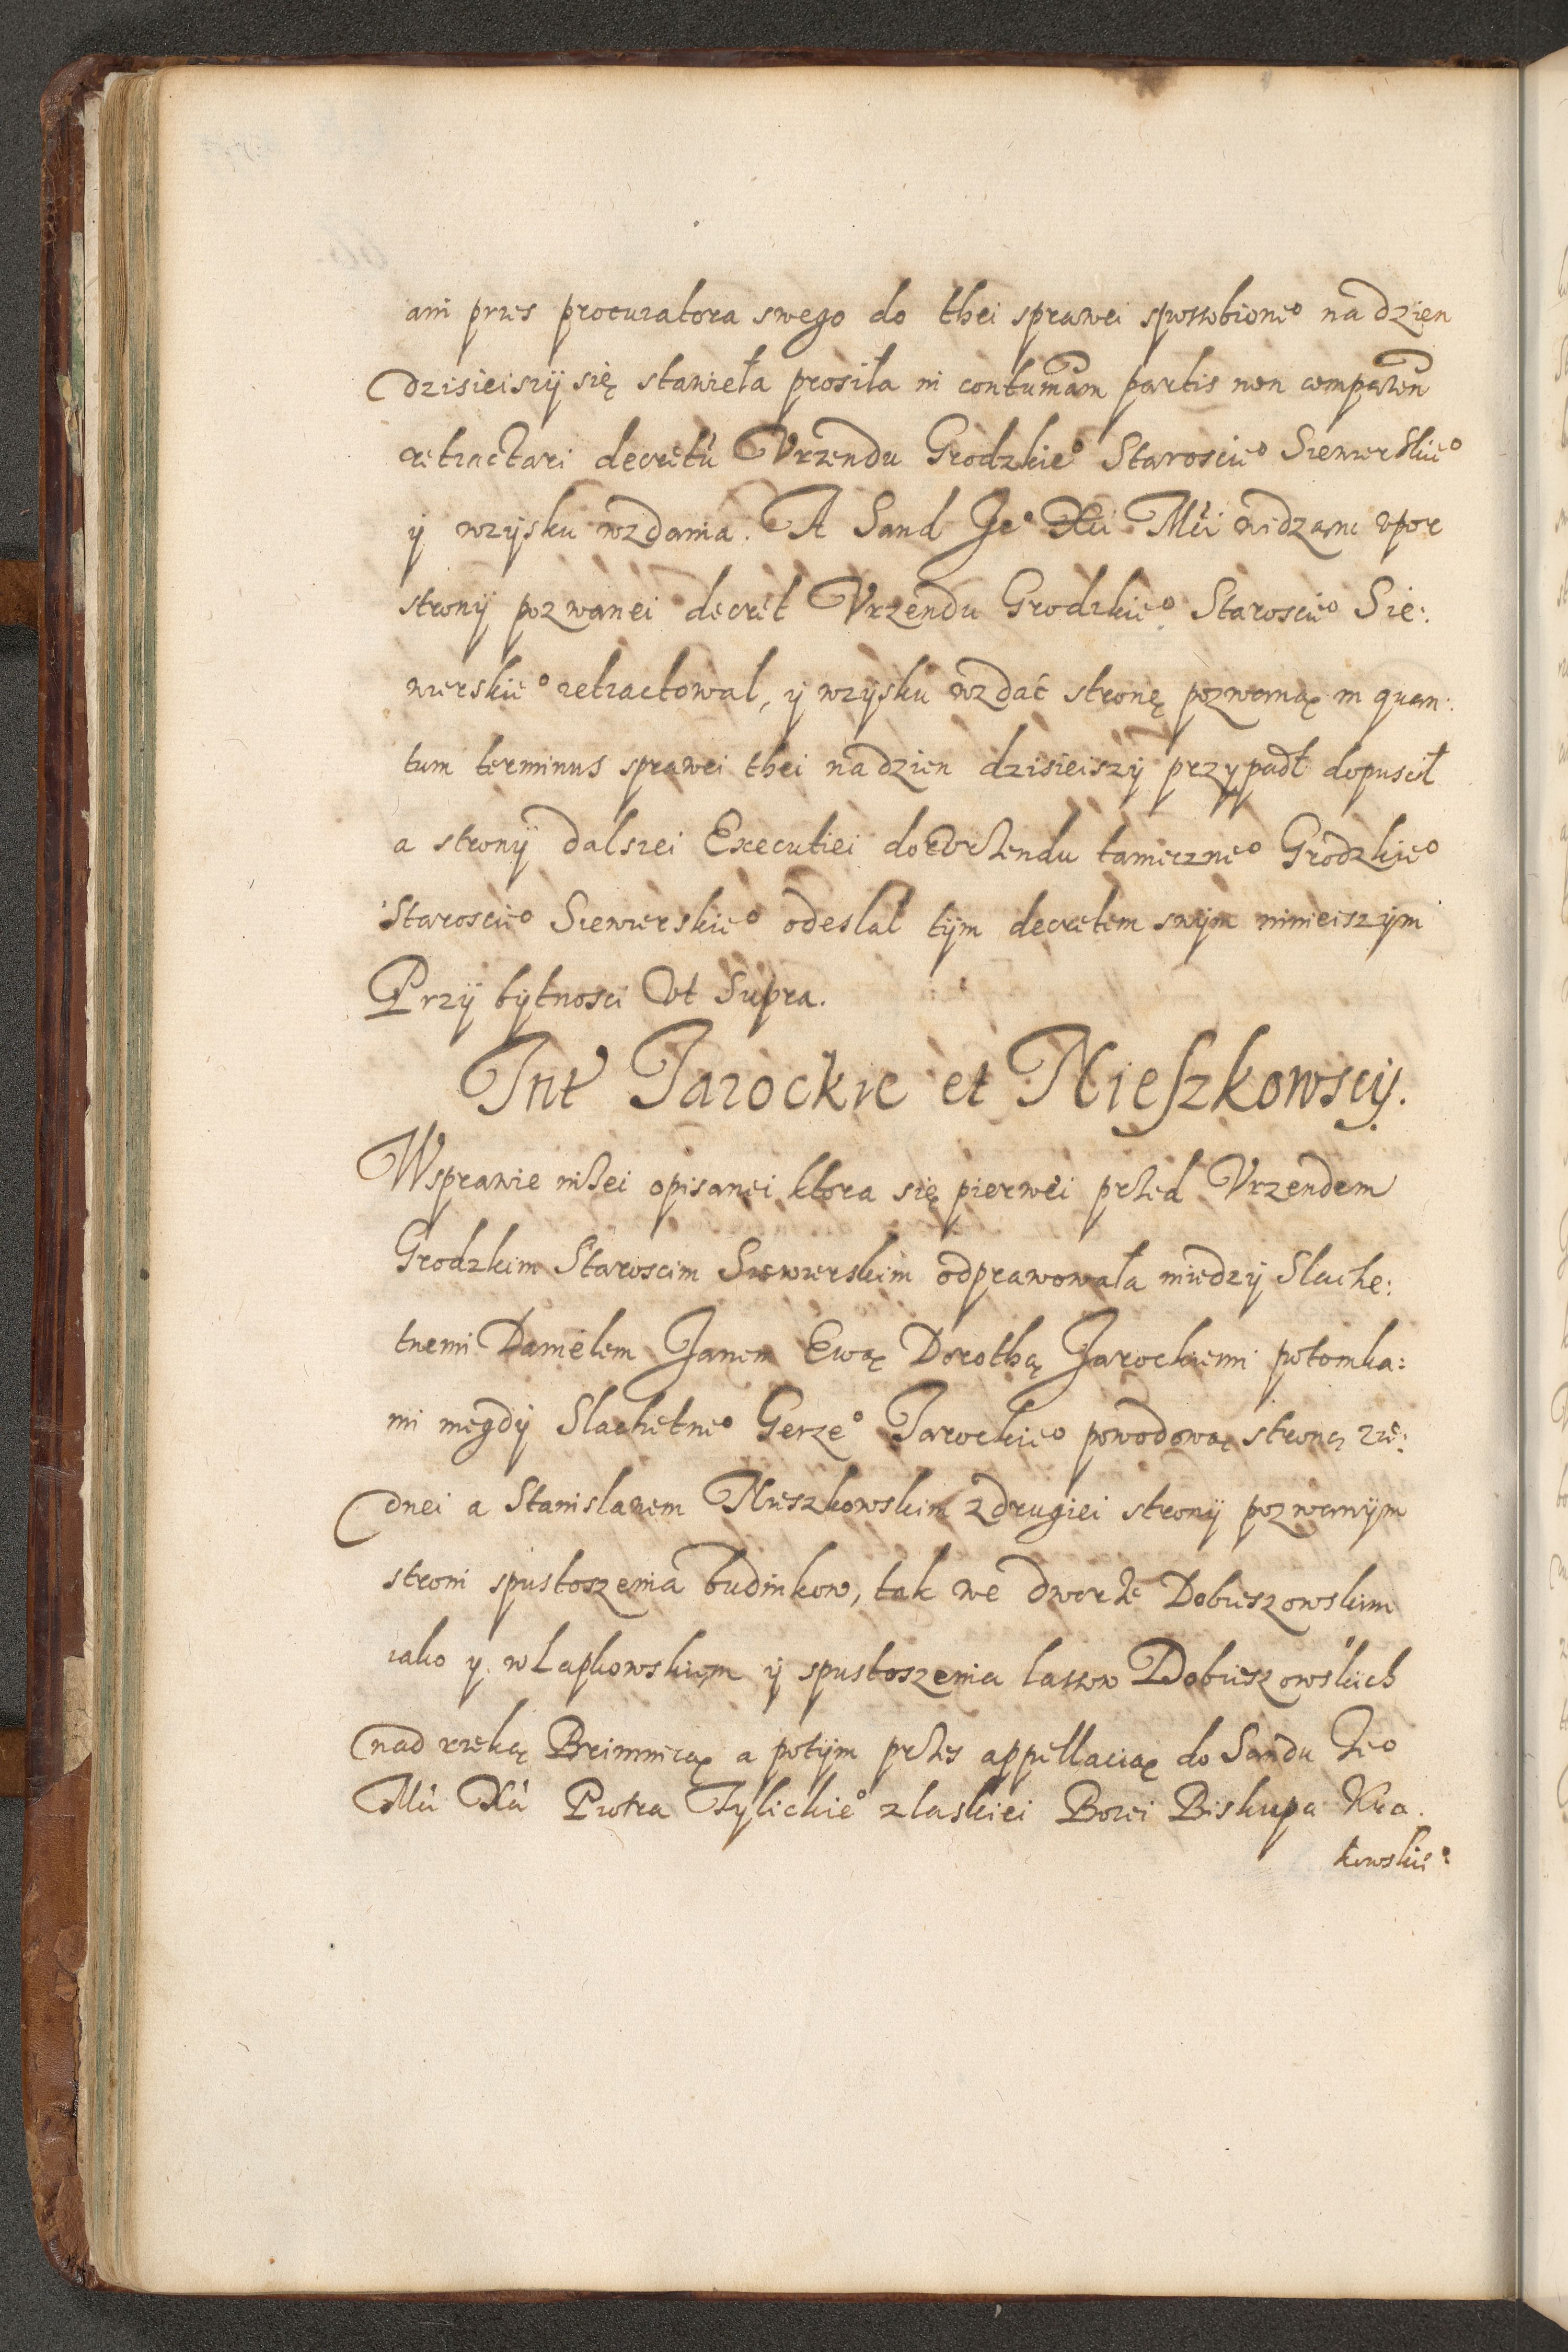 ani przes procuratora swego do thei sprawei sposobione° na dzien
dzisieiszÿ się stawieła prosiła in contumãm partis non comparen̄
retractari decretu Vrzendu Grodzkie° Staroscie° Siewierskie°
ÿ wzÿsku wzdania. A Sand Je° Xci Mći widzanc vpor
stronÿ pozwanei decret Vrzendu Grodzkie° Staroscie° Sie:
wierskie° retractowal, ÿ wzÿsku wzdać stronę pozwaną in quan:
tum terminus sprawei thei na dzien dzisieiszÿ przypadł dopuscił
a stronÿ dalszei Executiei do Vrzendu tameczne° Grodzkie°
Staroscie° Siewierskie° odeslał tÿm decretem swÿm ninieiszÿm
Przÿ bÿtnosci Vt Supra.
Int Jarockie et Mieszkowscÿ.
Wsprawie niżei opisanei ktora się pierwei przed Vrzendem
Grodzkim Staroscim Siewierskim odprawowała miedzÿ Slache:
tnemi Danielem Janem Ewą Dorothą Jarockiemi potomka:
mi niegdÿ Slachetne° Gerze° Jarockie° powodową stroną zie:
dnei a Stanislawem Mieszkowskim z drugiei stronÿ pozwanÿm
stroni spustoszenia budinkow, tak we dworze Dobieszowskim
iako y w Łapkowskiem ÿ spustoszenia lassow Dobieszowskich
nad rzeką Brinnicą a potÿm przes appellacią do Sandu Je°
Mći Xći Piotra Tylickie° z laskiei Bozei Biskupa Kra.
kowskie°